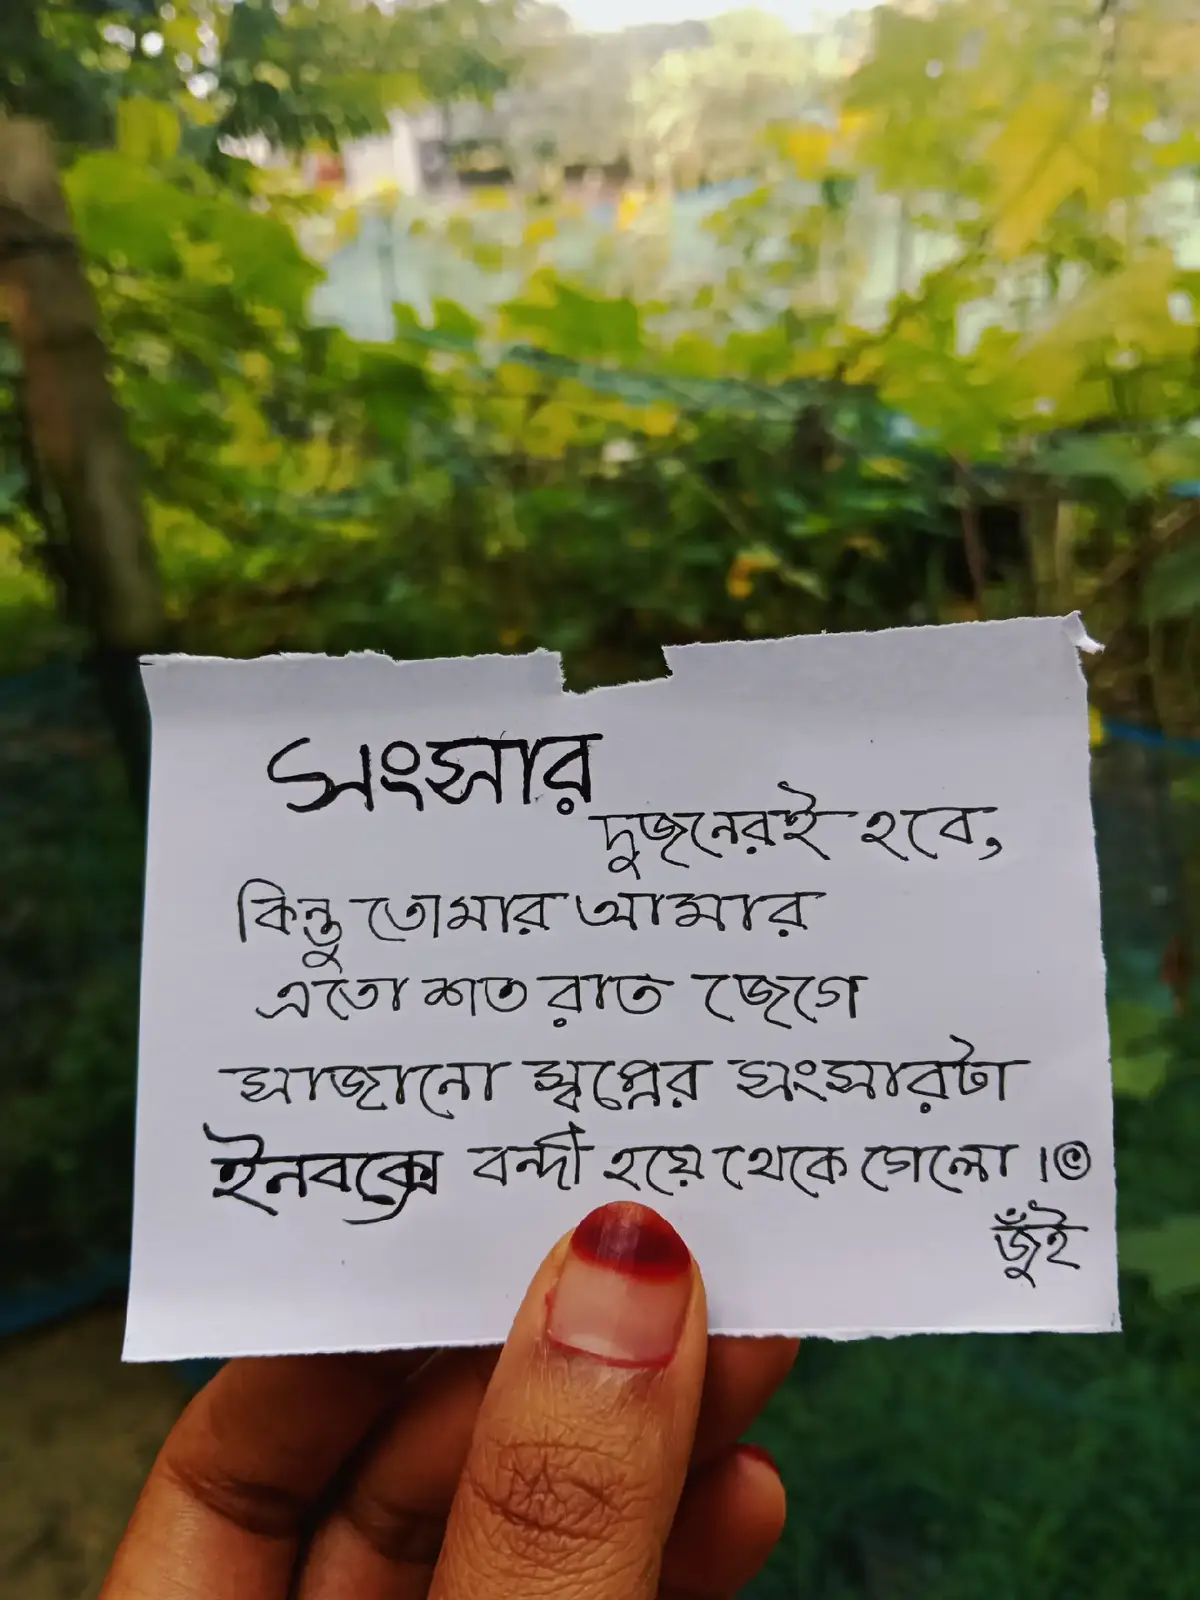 সংসার
দুজনেরই হবে,
কিন্তু তোমার আমার
এতো শত রাত জেগে
সাজানো স্বপ্নের সংসারটা
ইনবক্সে বন্দী হয়ে থেকে গেলো।©
জুঁই